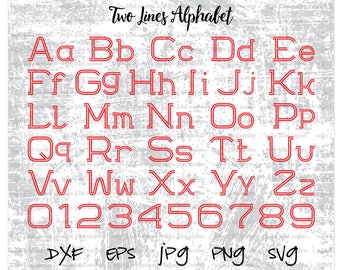 Two Lines Alphabet
Aa Bb Cc Dd Ee
Ff Gg Hh Ii Jj Kk
Ll Mm Nn Oo Pp
Qq Rr Ss Tt Uu
Vv Ww Xx Yy Zz
0123456789
DXF EPS jpg PNG SVG